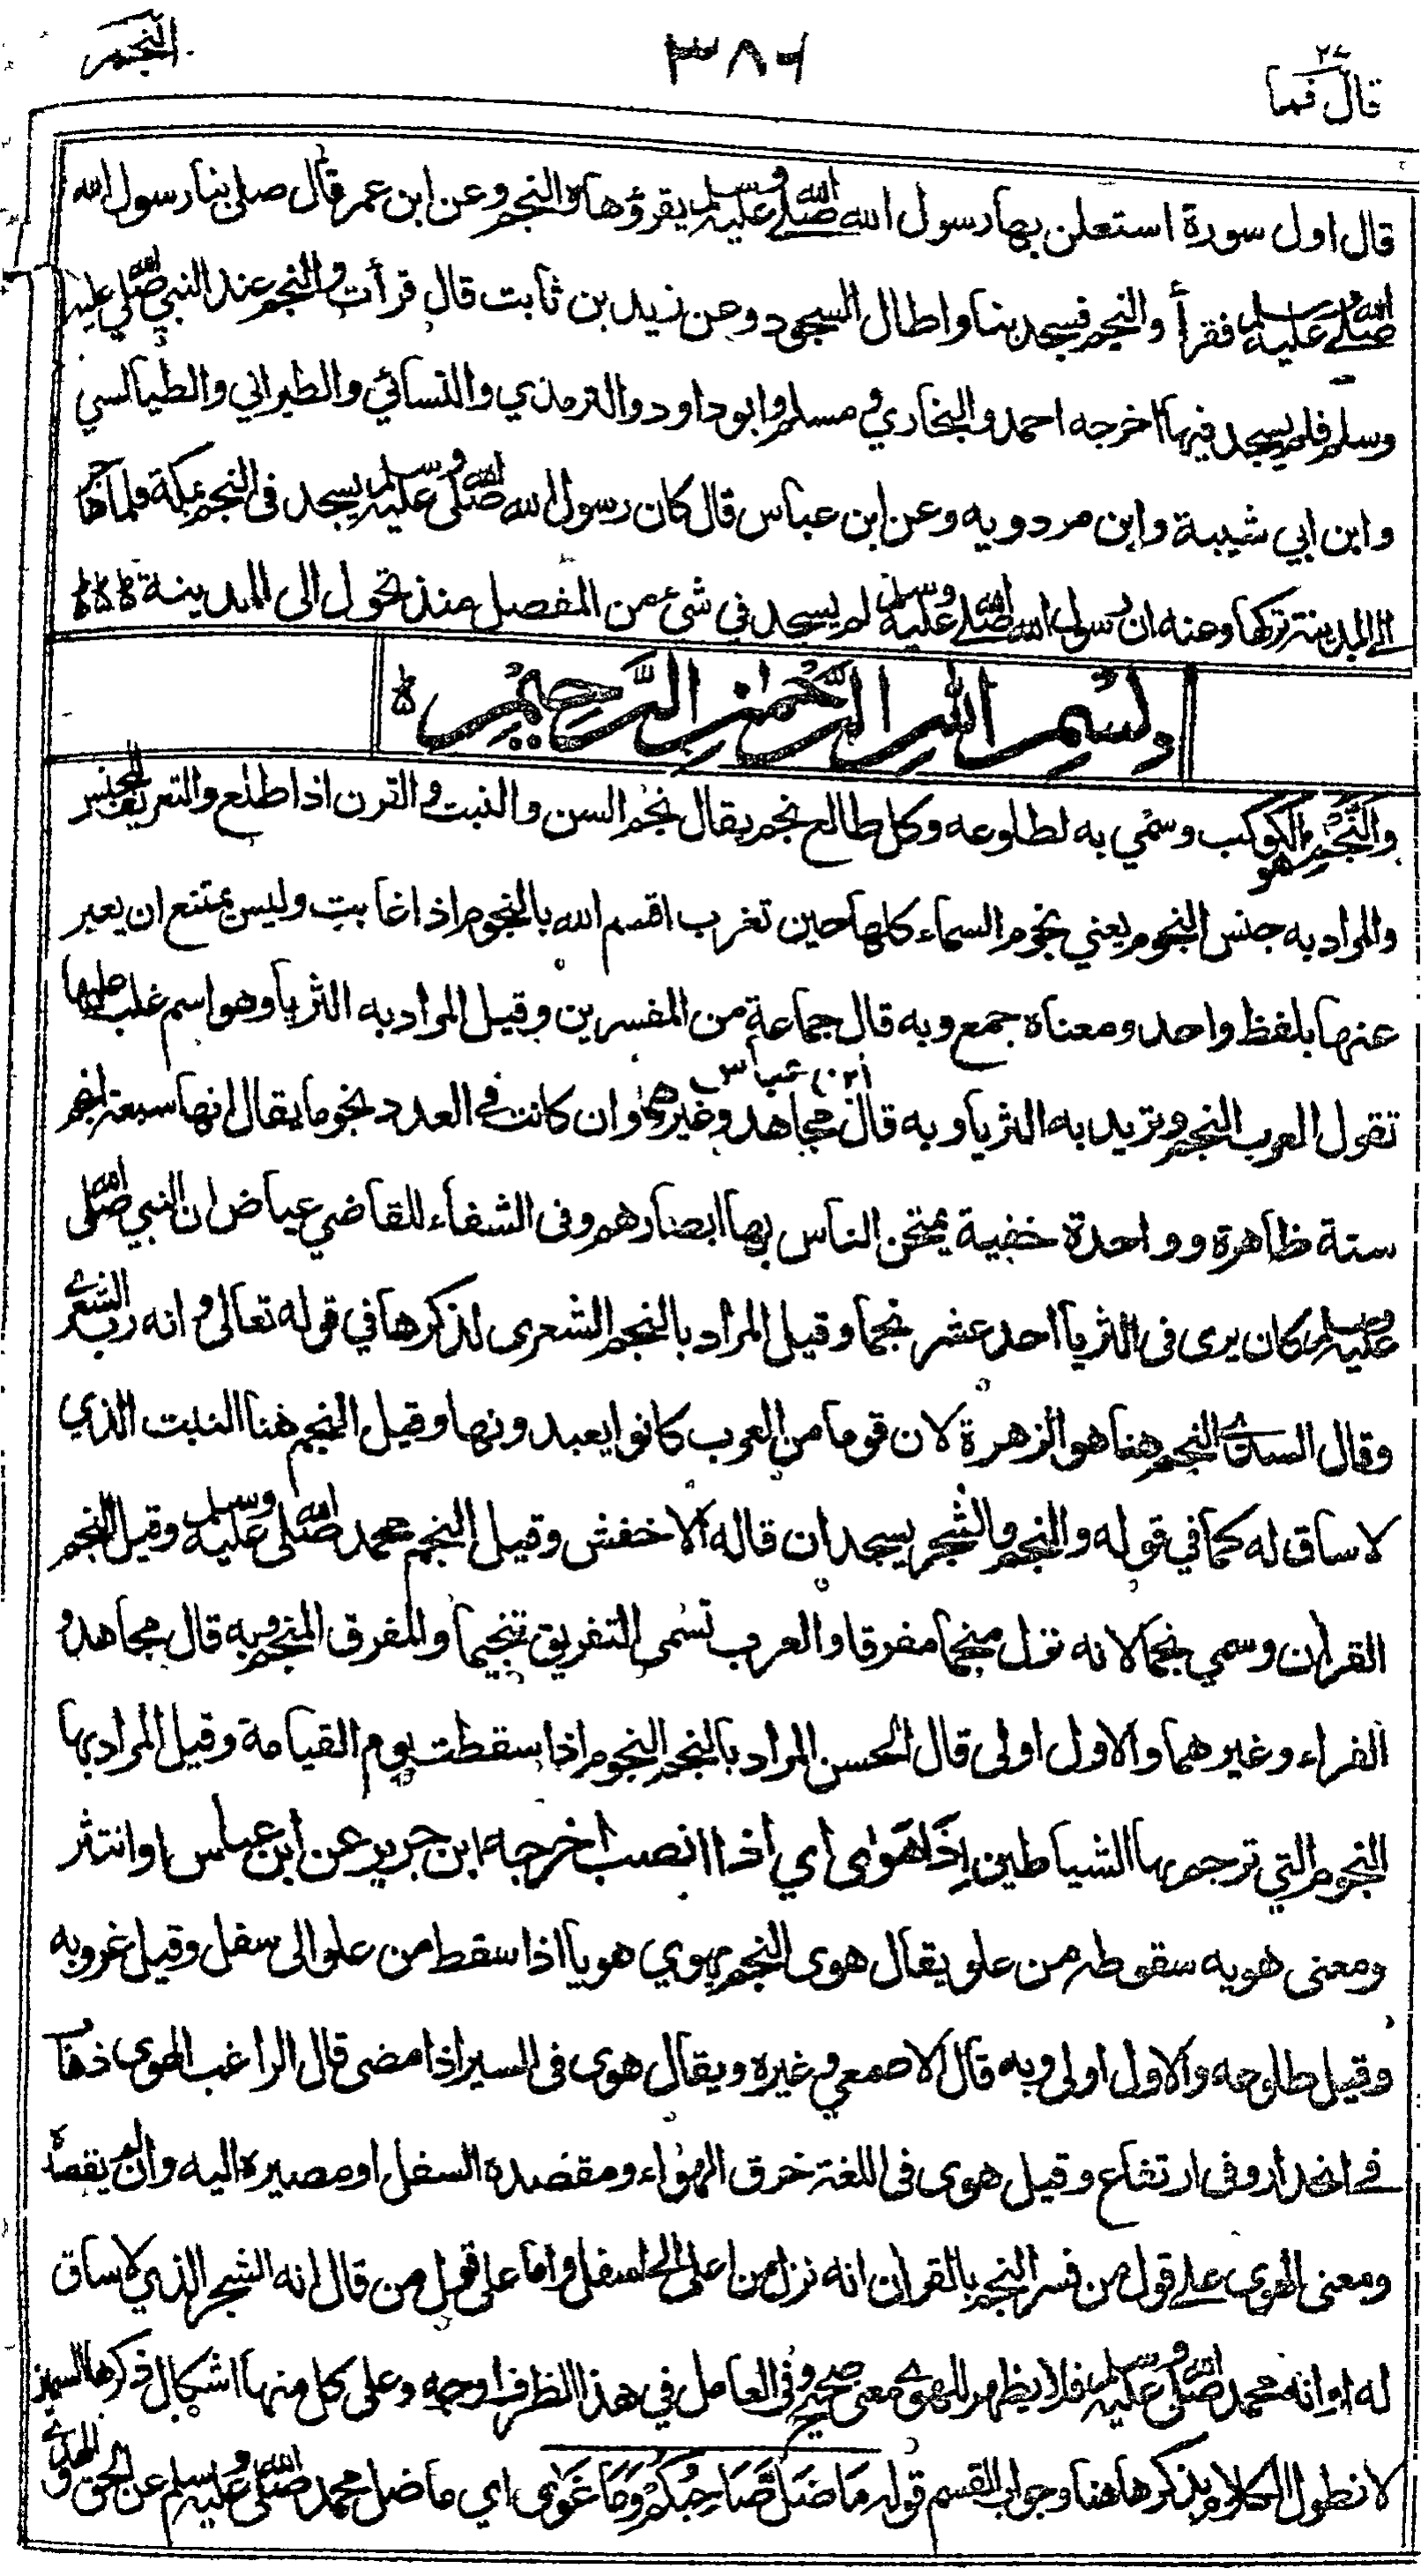 ٢٧
قال فما
٣٨٦
النجم
قال اول سورة استعلن بها رسول الله صلى الله عليه وسلم يقرؤها والنجم وعن ابن عمر قال صلى بنا رسول الله
صلى الله عليه وسلم فقرأ والنجم فسجد بنا واطال السجود وعن زيد بن ثابت قال قرأت والنجم عند النبي صلى الله عليه
وسلم فلم يسجد فيها اخرجه احمد والبخاري ومسلم وابو داود والترمذي والنسائي والطبراني والطيالسي
وابن ابي شيبة وابن مردويه وعن ابن عباس قال كان رسول الله صلى الله عليه وسلم يسجد فى النجم بمكة فلما هاجر
الے المدينة تركها وعنه ان رسول الله صلى الله عليه وسلم لم يسجد في شئ من المفصل منذ تحول الى المدينة
بسم الله الرحمن الرحيم
والنجم هو الكوكب وسمي به لطلوعه وكل طالع نجم يقال نجم السن والنبت والقرن اذا طلع والتعريف للجنس
والمراد به جنس النجوم يعني نجوم السماء كلها حين تغرب اقسم الله بالنجوم اذا غابت وليس بممتنع ان يعبر
عنها بلفظ واحد ومعناه جمع وبه قال جماعة من المفسرين وقيل المراد به الثريا وهو اسم غلب عليها
تقول العرب النجم وتريد به الثريا وبه قال ابن عباس مجاهد وغيرهما وان كانت في العدد نجوما يقال انها سبعة انجم
ستة ظاهرة وواحدة خفية يمتحن الناس بها ابصارهم وفى الشفاء للقاضي عياض ان النبي صلى الله
عليه وسلم كان يرى فى الثريا احد عشر نجما وقيل المراد بالنجم الشعرى لذكرها في قوله تعالى وانه رب الشعرے
وقال السدي النجم هنا هو الزهرة لان قوما من العرب كانوا يعبدونها وقيل النجم هنا النبت الذي
لا ساق له كما في قوله والنجم والشجر يسجدان قاله الاخفش وقيل النجم محمد صلى الله عليه وسلم وقيل النجم
القران وسمي نجما لانه نزل منجما مفرقا والعرب تسمى التفريق تنجيما والمفرق المنجم وبه قال مجاهد و
الفراء وغيرهما والاول اولى قال الحسن المراد بالنجم النجوم اذا سقطت يوم القيامة وقيل المراد بها
النجوم التي ترجم بها الشياطين اِذَا هَوٰى اي اذا انصب اخرجه ابن جرير عن ابن عباس او انتثر
ومعنى هويه سقوطه من علو يقال هوى النجم يهوي هويا اذا سقط من علو الى سفل وقيل غروبه
وقيل طلوعه والاول اولى وبه قال الاصمعي وغيره ويقال هوى فى السير اذا مضى قال الراغب الهوى ذهاب
فے انحدار وفى ارتفاع وقيل هوى فى اللغة خرق الهواء ومقصده السفل او مصيره اليه وان لم يقصده
ومعنى الهوى علے قول من فسر النجم بالقران انه نزل من اعلى الى اسفل واما على قول من قال انه الشجر الذي لا ساق
له او انه محمد صلى الله عليه وسلم فلا يظهر للهوى معنى صحيح وفى العامل في هذا الظرف اوجه وعلى كل منها اشكال ذكرها السمين
لا نطول الكلام بذكرها هنا وجواب القسم قوله مَا ضَلَّ صَاحِبُكُمْ وَمَا غَوٰى اي ما ضل محمد صلى الله عليه وسلم عن الحق والهدى و